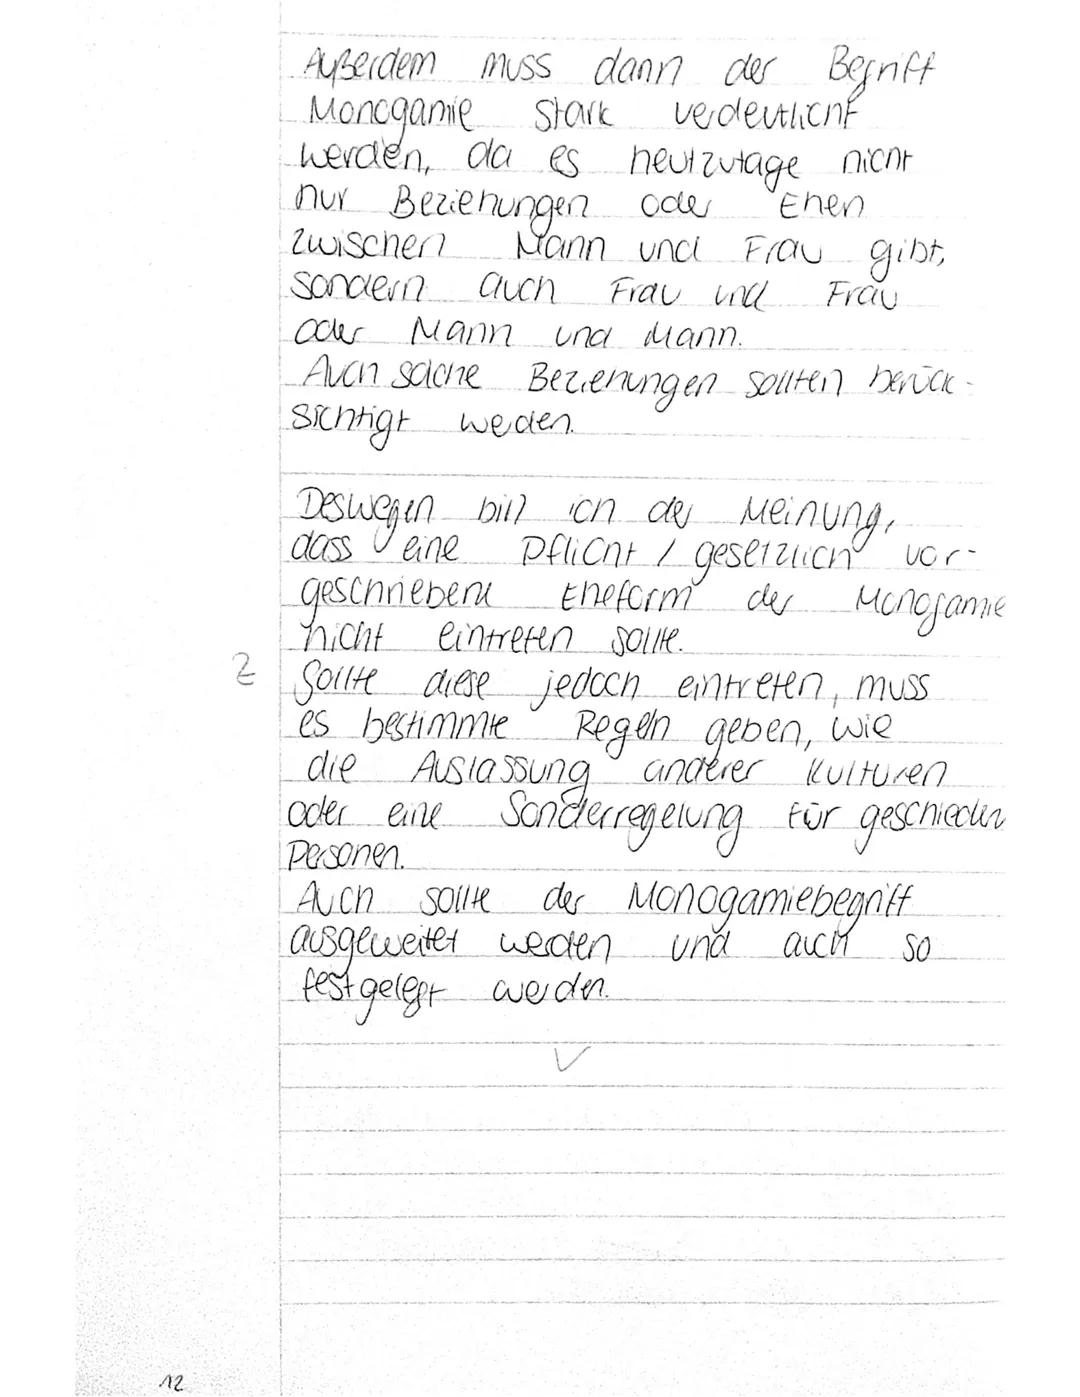 Außerdem muss dann der Begriff
Monogamie stark verdeutlicht
werden, da es heutzutage nicht
nur Beziehungen oder Ehen
zwischen Mann und Frau gibt,
sondern auch Frau und Frau
oder Mann und Mann.
Auch solche Beziehungen sollten berück-
sichtigt werden.
Deswegen bin ich der Meinung,
dass eine Pflicht / gesetzlich vor-
geschriebene Eheform der Monogamie
nicht eintreten sollte.
Z Sollte diese jedoch eintreten, muss
es bestimmte Regeln geben, wie
die Auslassung anderer Kulturen
oder eine Sonderregelung für geschieden
Personen.
Auch sollte der Monogamiebegriff
ausgeweitet werden und auch so
festgelegt werden.
✓
12